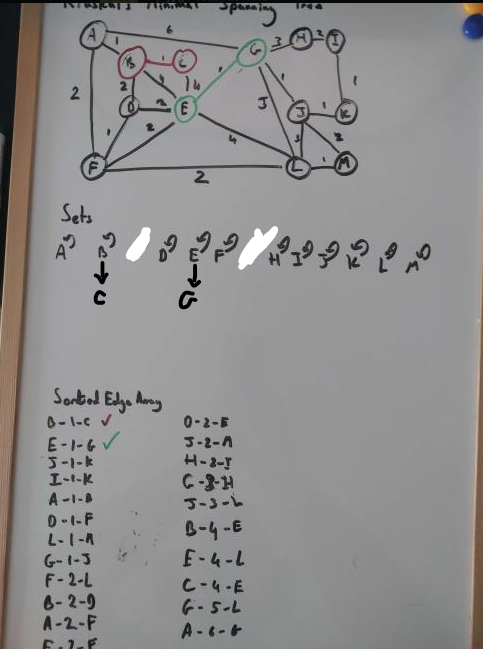 Kruskal's Minimal Spanning Tree
A 6 G 3 H 2 I
1 B 1 C
2 2 4 4 1 1 1
D 2 E 5 J 1 K
1 2 4 3 2
F 2 L 1 M
Sets
A B D E F H I J K L M
C G
Sorted Edge Array
B-1-C ✓
E-1-G ✓
J-1-K
I-1-K
A-1-B
D-1-F
L-1-M
G-1-J
F-2-L
B-2-D
A-2-F
E-2-F
D-2-E
J-2-M
H-2-I
G-3-H
J-3-L
B-4-E
E-4-L
C-4-E
G-5-L
A-6-G